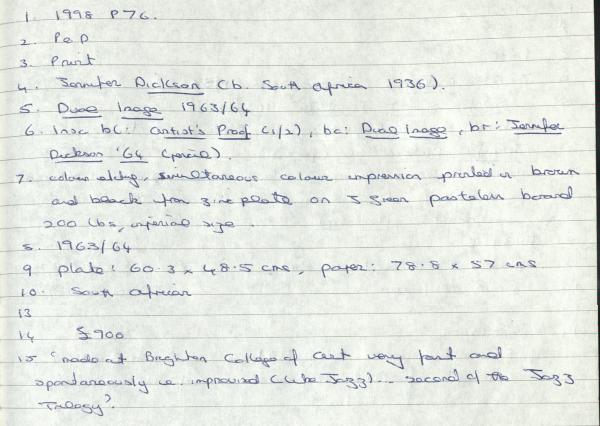 1. 1998 P76.
2. P&P
3. Print
4. Jennifer Dickson (b. South Africa 1936).
5. Dual Image 1963/64
6. Insc bl: Artist's Proof (1/2), bc: Dual Image, br: Jennifer
Dickson '64 (pencil).
7. colour etching, simultaneous colour impression printed in brown
and black from zinc plate on J Green pasteless board
200 lbs, imperial size.
8. 1963/64
9 plate: 60.3 x 48.5 cms, paper: 78.8 x 57 cms
10. South African
13
14 £900
15 'made at Brighton College of Art very fast and
spontaneously i.e. improvised (like Jazz)... second of the Jazz
Trilogy'.